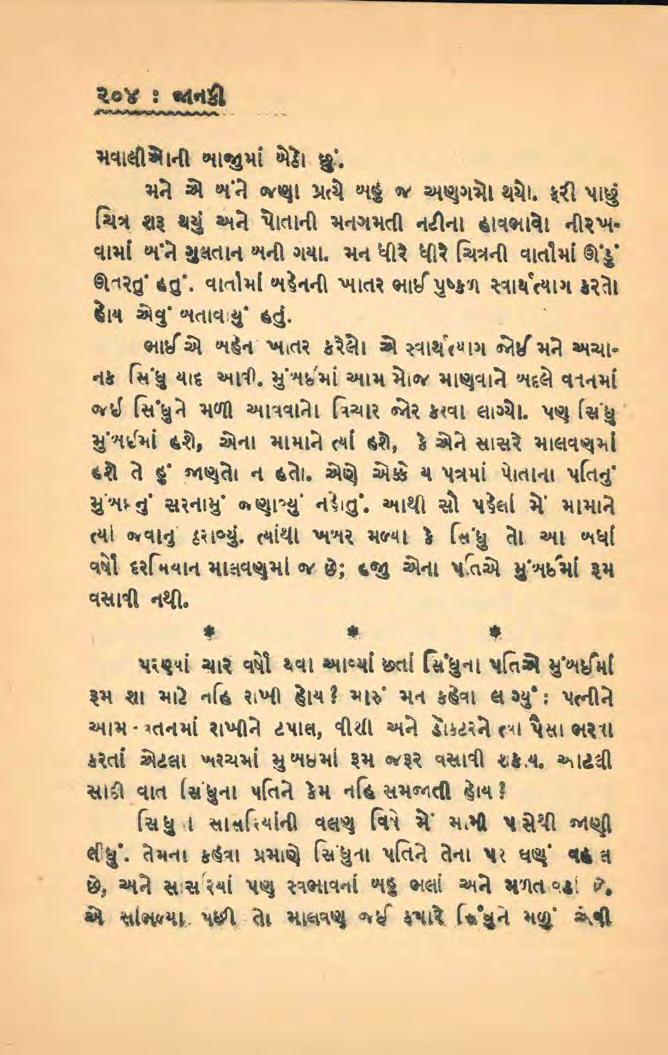 ૨૦૪ : જાનકી
મવાલીઓની બાજુમાં બેઠો છું.
મને એ બંને જણા પ્રત્યે બહુ જ અણગમો થયો. ફરી પાછું
ચિત્ર શરૂ થયું અને પોતાની મનગમતી નટીના હાવભાવો નીરખ-
વામાં બંને ગુલતાન બની ગયા. મન ધીરે ધીરે ચિત્રની વાર્તામાં ઊંડું
ઊતરતું હતું. વાર્તામાં બહેનની ખાતર ભાઈ પુષ્કળ સ્વાર્થત્યાગ કરતો
હોય એવું બતાવાયું હતું.
ભાઈએ બહેન ખાતર કરેલો એ સ્વાર્થત્યાગ જોઈ મને અચા-
નક સિંધુ યાદ આવી. મુંબઈમાં આમ મોજ માણવાને બદલે વતનમાં
જઈ સિંધુને મળી આવવાનો વિચાર જોર કરવા લાગ્યો. પણ સિંધુ
મુંબઈમાં હશે, એના મામાને ત્યાં હશે, કે એને સાસરે માલવણમાં
હશે તે હું જાણતો ન હતો. એણે એક્કે ય પત્રમાં પોતાના પતિનું
મુંબઈનું સરનામું જણાવ્યું નહોતું. આથી સૌ પહેલાં મેં મામાને
ત્યાં જવાનું ઠરાવ્યું. ત્યાંથી ખબર મળ્યા કે સિંધુ તો આ બધાં
વર્ષો દરમિયાન માલવણમાં જ છે; હજી એના પતિએ મુંબઈમાં રૂમ
વસાવી નથી.
* * *
પરણ્યાં ચાર વર્ષો થવા આવ્યાં છતાં સિંધુના પતિએ મુંબઈમાં
રૂમ શા માટે નહિ રાખી હોય? મારું મન કહેવા લાગ્યું : પત્નીને
આમ વતનમાં રાખીને ટપાલ, વીશી અને ડૉક્ટરને ત્યાં પૈસા ભરવા
કરતાં એટલા ખરચમાં મુંબઈમાં રૂમ જરૂર વસાવી શકાય. આટલી
સાદી વાત સિંધુના પતિને કેમ નહિ સમજાતી હોય?
સિંધુનાં સાસરિયાંની વલણ વિષે મેં મામી પાસેથી જાણી
લીધું. તેમના કહેવા પ્રમાણે સિંધુના પતિને તેના પર ઘણું વહાલ
છે, અને સાસરિયાં પણ સ્વભાવનાં બહુ ભલાં અને મળતાવડાં છે.
એ સાંભળ્યા પછી તો માલવણ જઈ ક્યારે સિંધુને મળું એવી